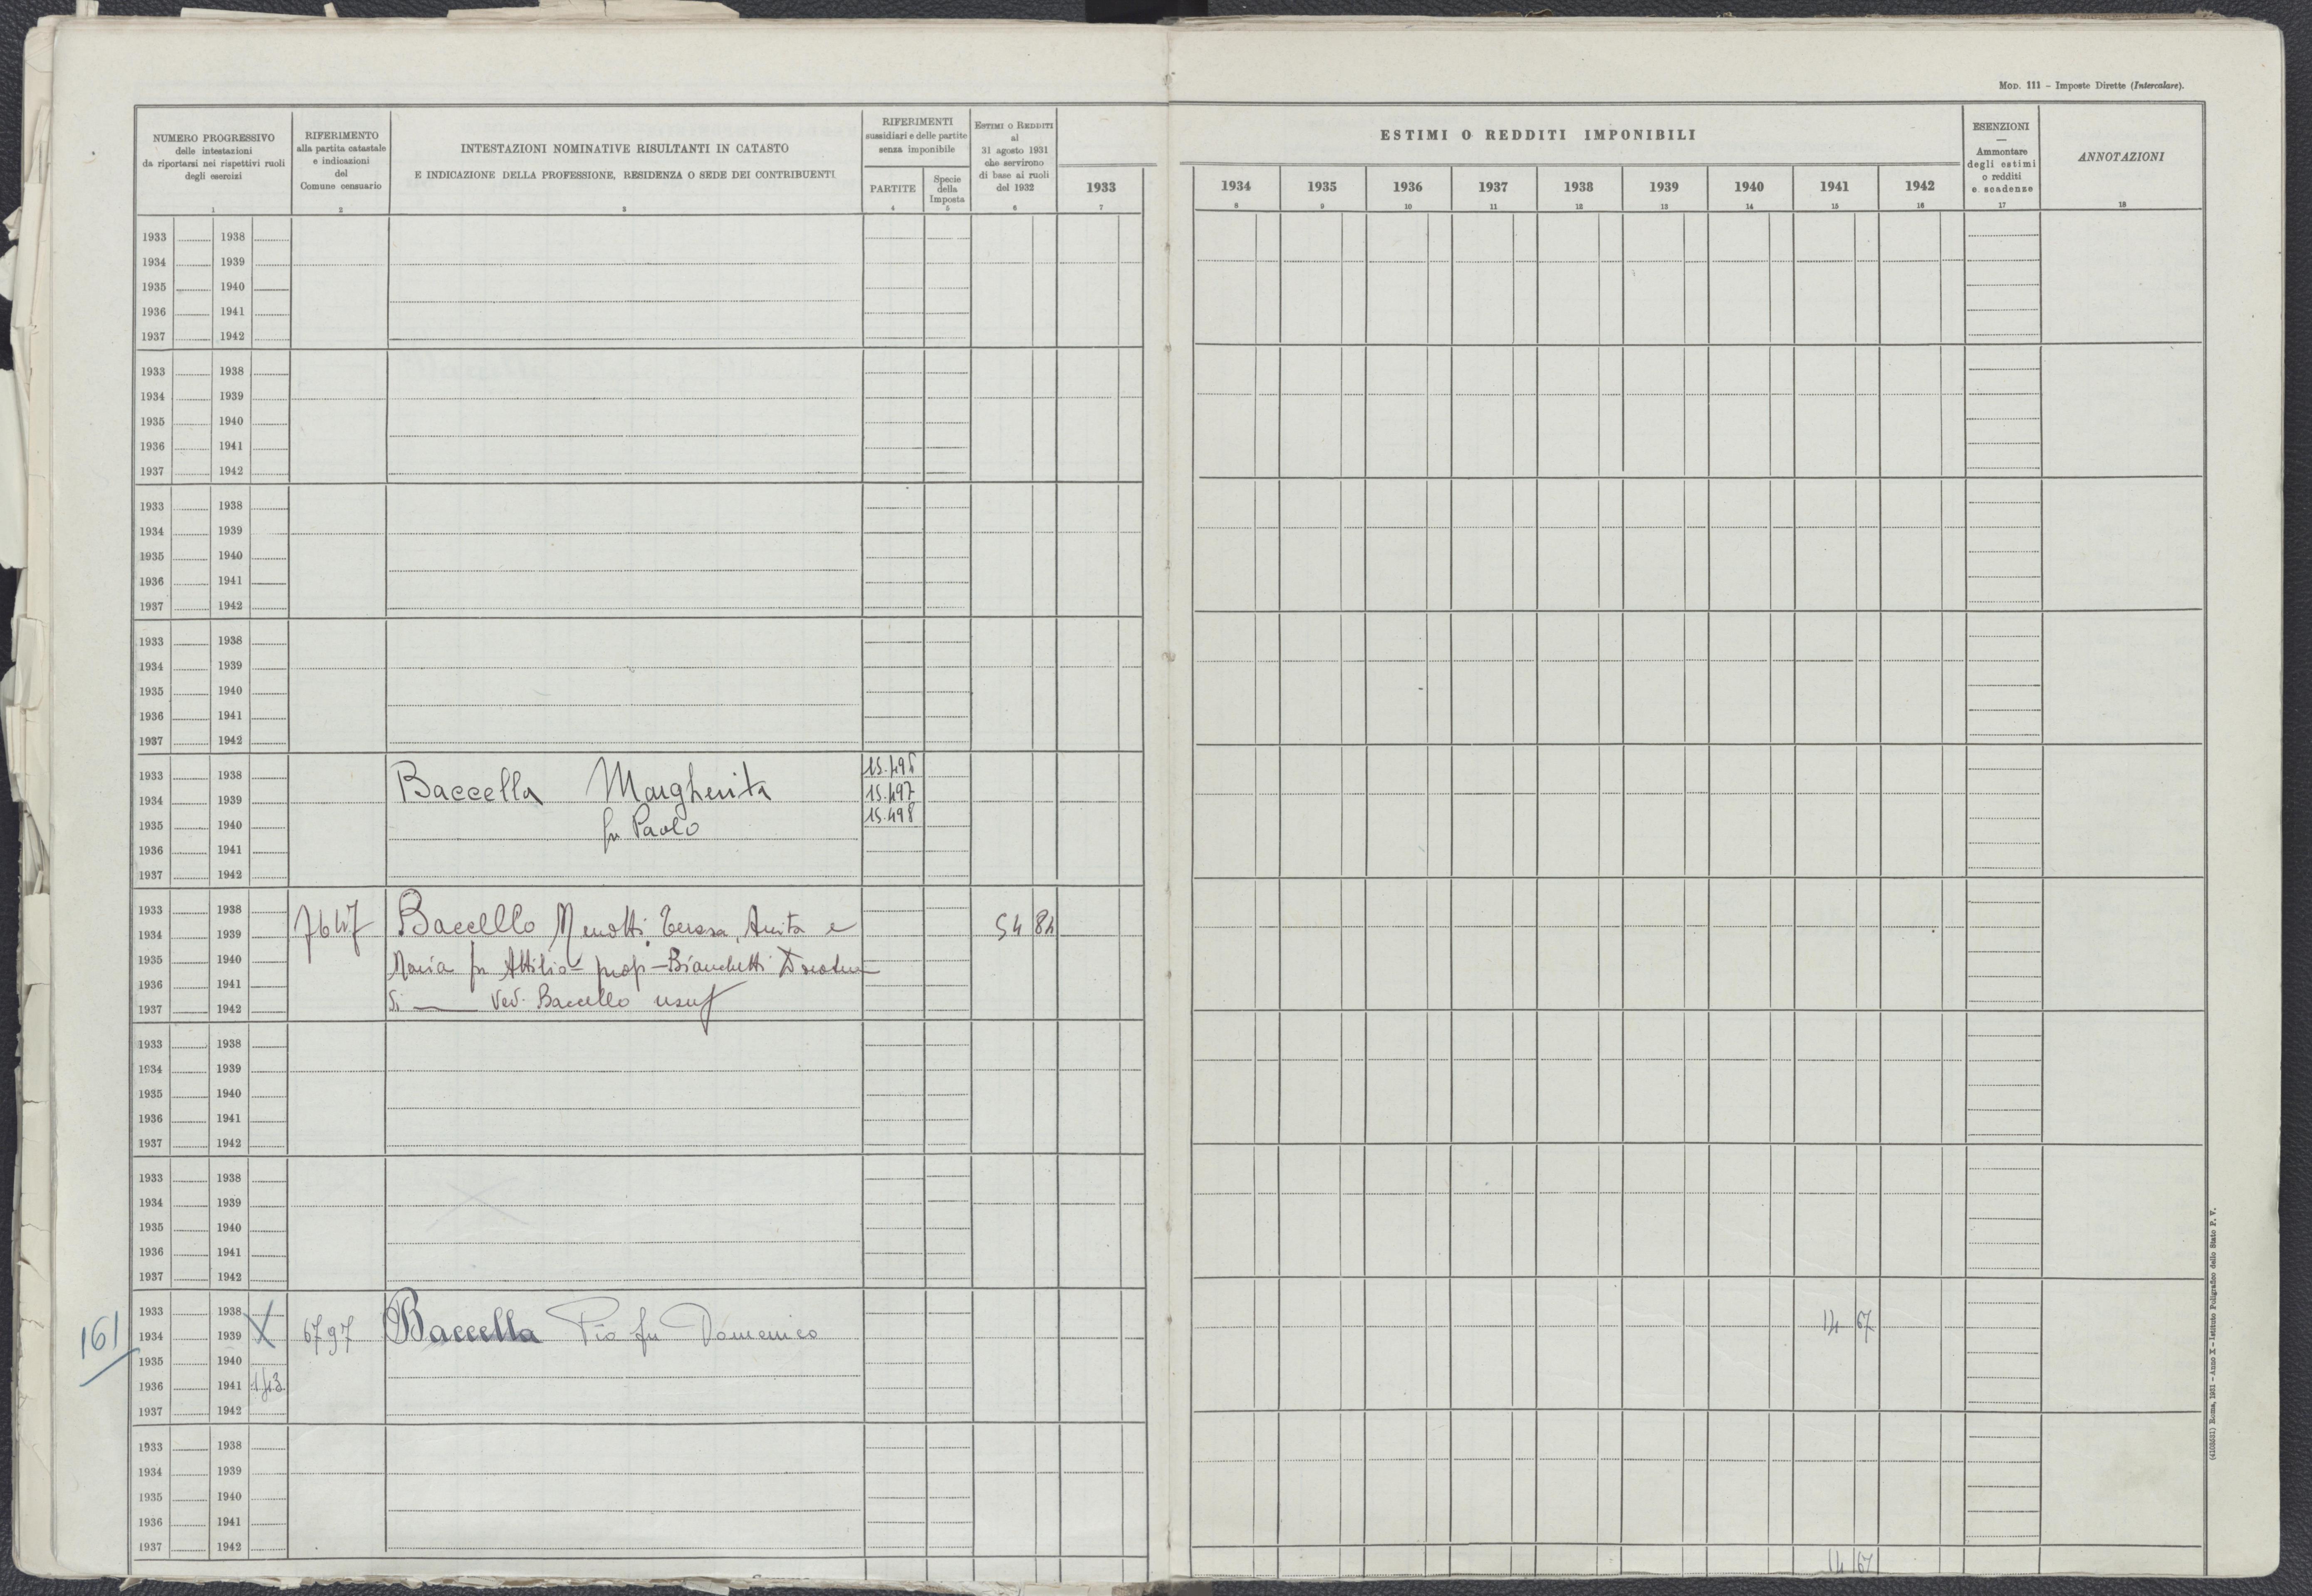 Mod. 111 – Imposte Dirette (Intercalare).
NUMERO PROGRESSIVO
delle intestazioni
da riportarsi nei rispettivi ruoli
degli esercizi
1
RIFERIMENTO
alla partita catastale
e indicazioni
del
Comune censuario
2
INTESTAZIONI NOMINATIVE RISULTANTI IN CATASTO
E INDICAZIONE DELLA PROFESSIONE, RESIDENZA O SEDE DEI CONTRIBUENTI
3
RIFERIMENTI
sussidiari e delle partite
senza imponibile
PARTITE
4
Specie
della
Imposta
5
Estimi o Redditi
al
31 agosto 1931
che servirono
di base ai ruoli
del 1932
6
ESTIMI O REDDITI IMPONIBILI
1933 1934 1935 1936 1937 1938 1939 1940 1941 1942
7 8 9 10 11 12 13 14 15 16
ESENZIONI
—
Ammontare
degli estimi
o redditi
e scadenze
17
ANNOTAZIONI
18
1933 1938
1934 1939
1935 1940
1936 1941
1937 1942
1933 1938
1934 1939
1935 1940
1936 1941
1937 1942
1933 1938
1934 1939
1935 1940
1936 1941
1937 1942
1933 1938
1934 1939
1935 1940
1936 1941
1937 1942
1933 1938
1934 1939 Baccella Margherita 15.497
1935 1940 fu Paolo 15.498
1936 1941
1937 1942
1933 1938
1934 1939 7647 Baccello Menotti, Teresa, Anita e 54 84
1935 1940 Maria fu Attilio – prop – Bianchetti
1936 1941
1937 1942 di — Ved. Baccello usuf
1933 1938
1934 1939
1935 1940
1936 1941
1937 1942
1933 1938
1934 1939
1935 1940
1936 1941
1937 1942
1933 1938
161 1934 1939 X 6797 Baccella Pio fu Domenico 14 67
1935 1940
1936 1941 143
1937 1942
1933 1938
1934 1939
1935 1940
1936 1941
1937 1942
14 67
(4103631) Roma, 1931 – Anno X – Istituto Poligrafico dello Stato P. V.